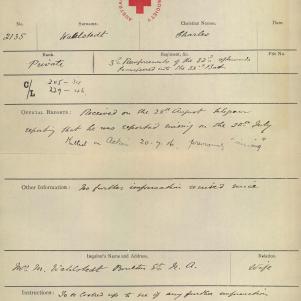 No. Surname. Christian Names.
2135 Wahlstedt Charles
Rank. Regiment, &c. File No.
Private 5th Reinforcements of the 22nd afterwards
transferred into the 23rd Batt.
C/L
229 - 46
OFFICIAL REPORTS: Received on the 28th August telegram
reporting that he was reported missing on the 20th July
Killed in Action 20.7.16 previously "missing"
Other Information: No further information received since
Inquirer's Name and Address. Relation.
Mrs. M. Wahlstedt St. Wife
Instructions: To be looked up to see if any further information